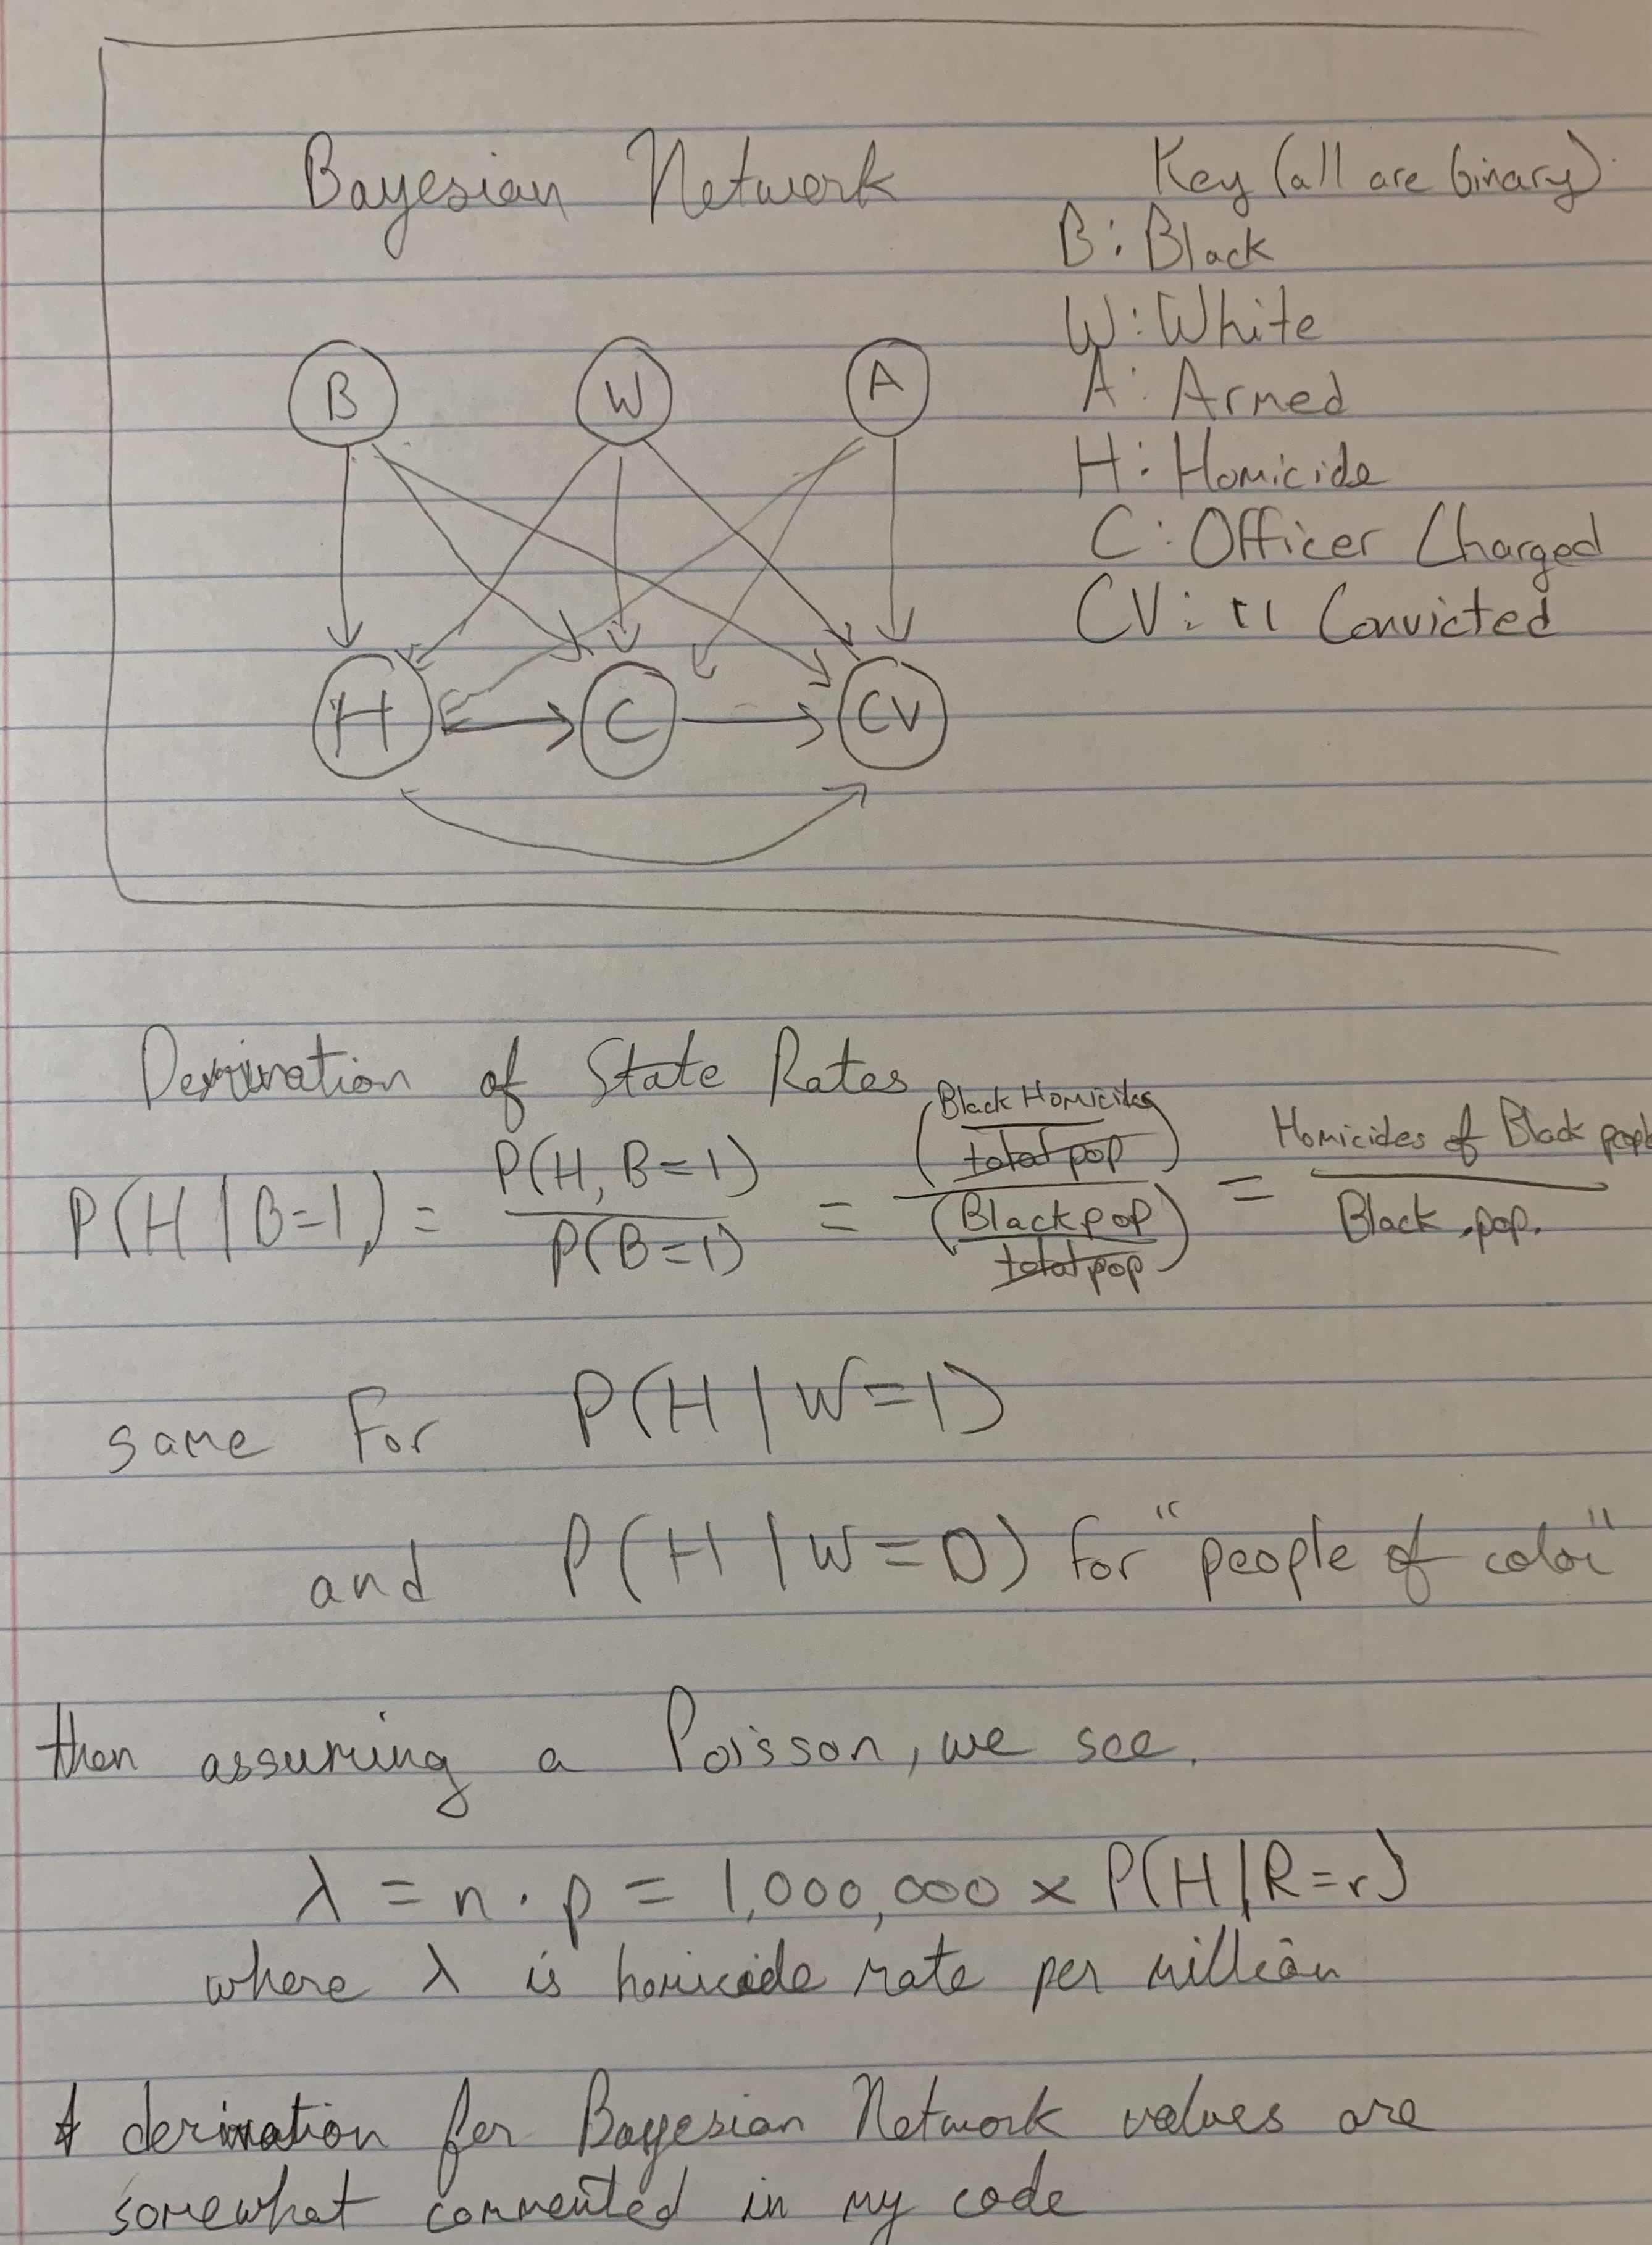 Bayesian Network
Key (all are binary):
B: Black
W: White
A: Armed
H: Homicide
C: Officer Charged
CV: " Convicted
B W A
H C CV
Derivation of State Rates
P(H | B=1) = P(H, B=1) / P(B=1) = (Black Homicides / total pop) / (Black pop / total pop) = Homicides of Black people / Black pop.
same for P(H | W=1)
and P(H | W=0) for "people of color"
then assuming a Poisson, we see.
λ = n · p = 1,000,000 x P(H | R=r)
where λ is homicide rate per million
* derivation for Bayesian Network values are
somewhat commented in my code